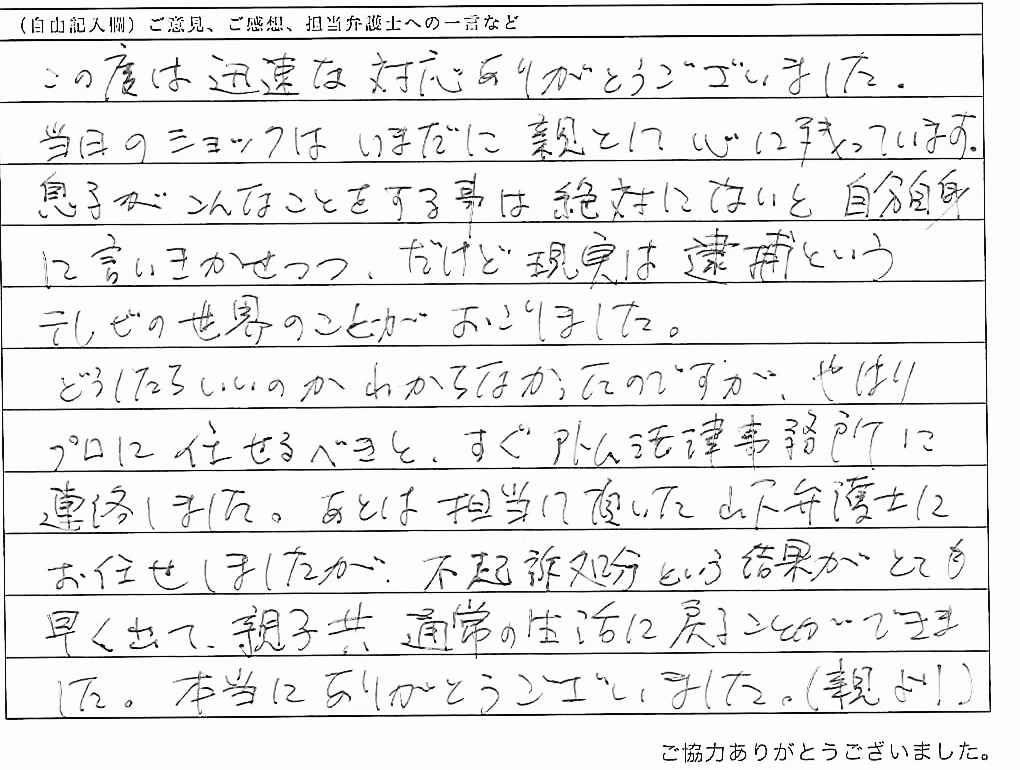 (自由記入欄)ご意見、ご感想、担当弁護士への一言など
この度は迅速な対応ありがとうございました。
当日のショックはいまだに親として心に残っています。
息子がこんなことをする事は絶対にないと自分自身
に言いきかせつつ、だけど現実は逮捕という
テレビの世界のことがおこりました。
どうしたらいいのかわからなかったのですが、やはり
プロに任せるべきと、すぐアトム法律事務所に
連絡しました。あとは担当して頂いた山下弁護士に
お任せしましたが、不起訴処分という結果がとても
早く出て、親子共通常の生活に戻ることができま
した。本当にありがとうございました。(親より)
ご協力ありがとうございました。